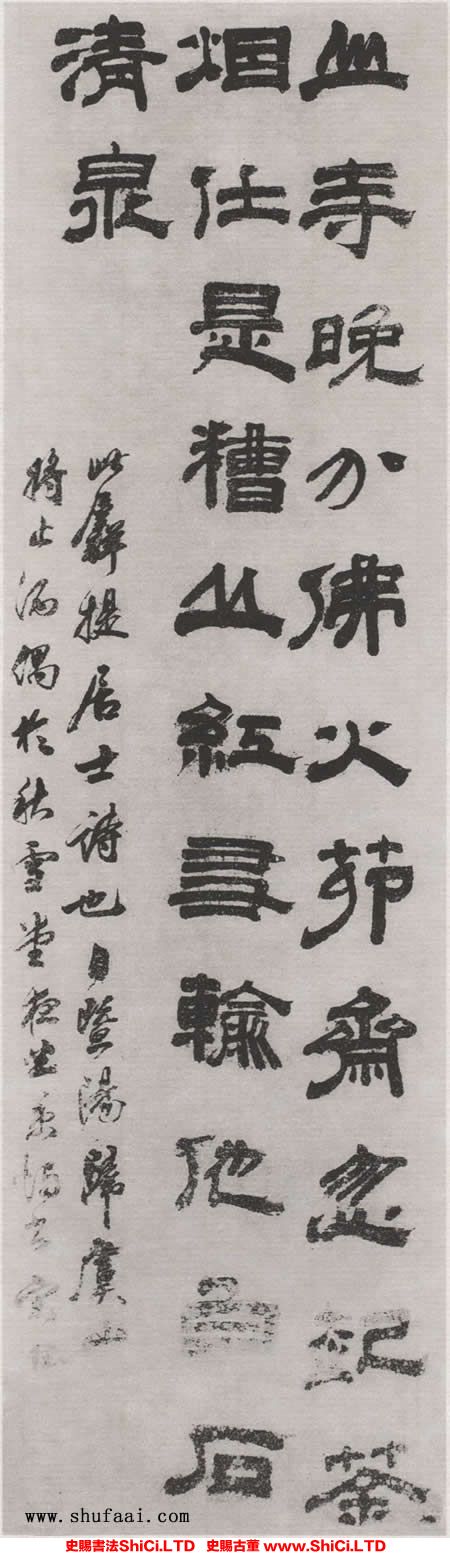 山寺晚分佛火茆齋忽起茶
烟任是糟丘紅友輸他白石
清泉
此提居士詩也自暨陽歸虞山
將止酒偶於秋雪堂夜坐書
www.shufaai.com
史賜書法ShiCi.LTD 史賜古董 www.ShiCi.LTD